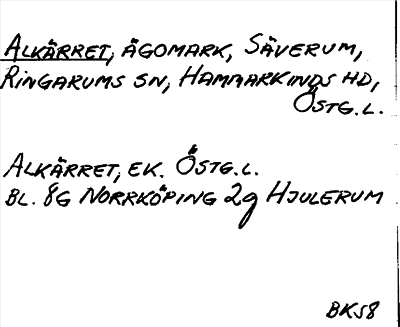 ALKÄRRET, ÄGOMARK, SÄVERUM,
RINGARUMS SN, HAMMARKINDS HD,
ÖSTG.L.
ALKÄRRET, EK. ÖSTG.L.
BL. 8G NORRKÖPING 2g HJULERUM
BKS8